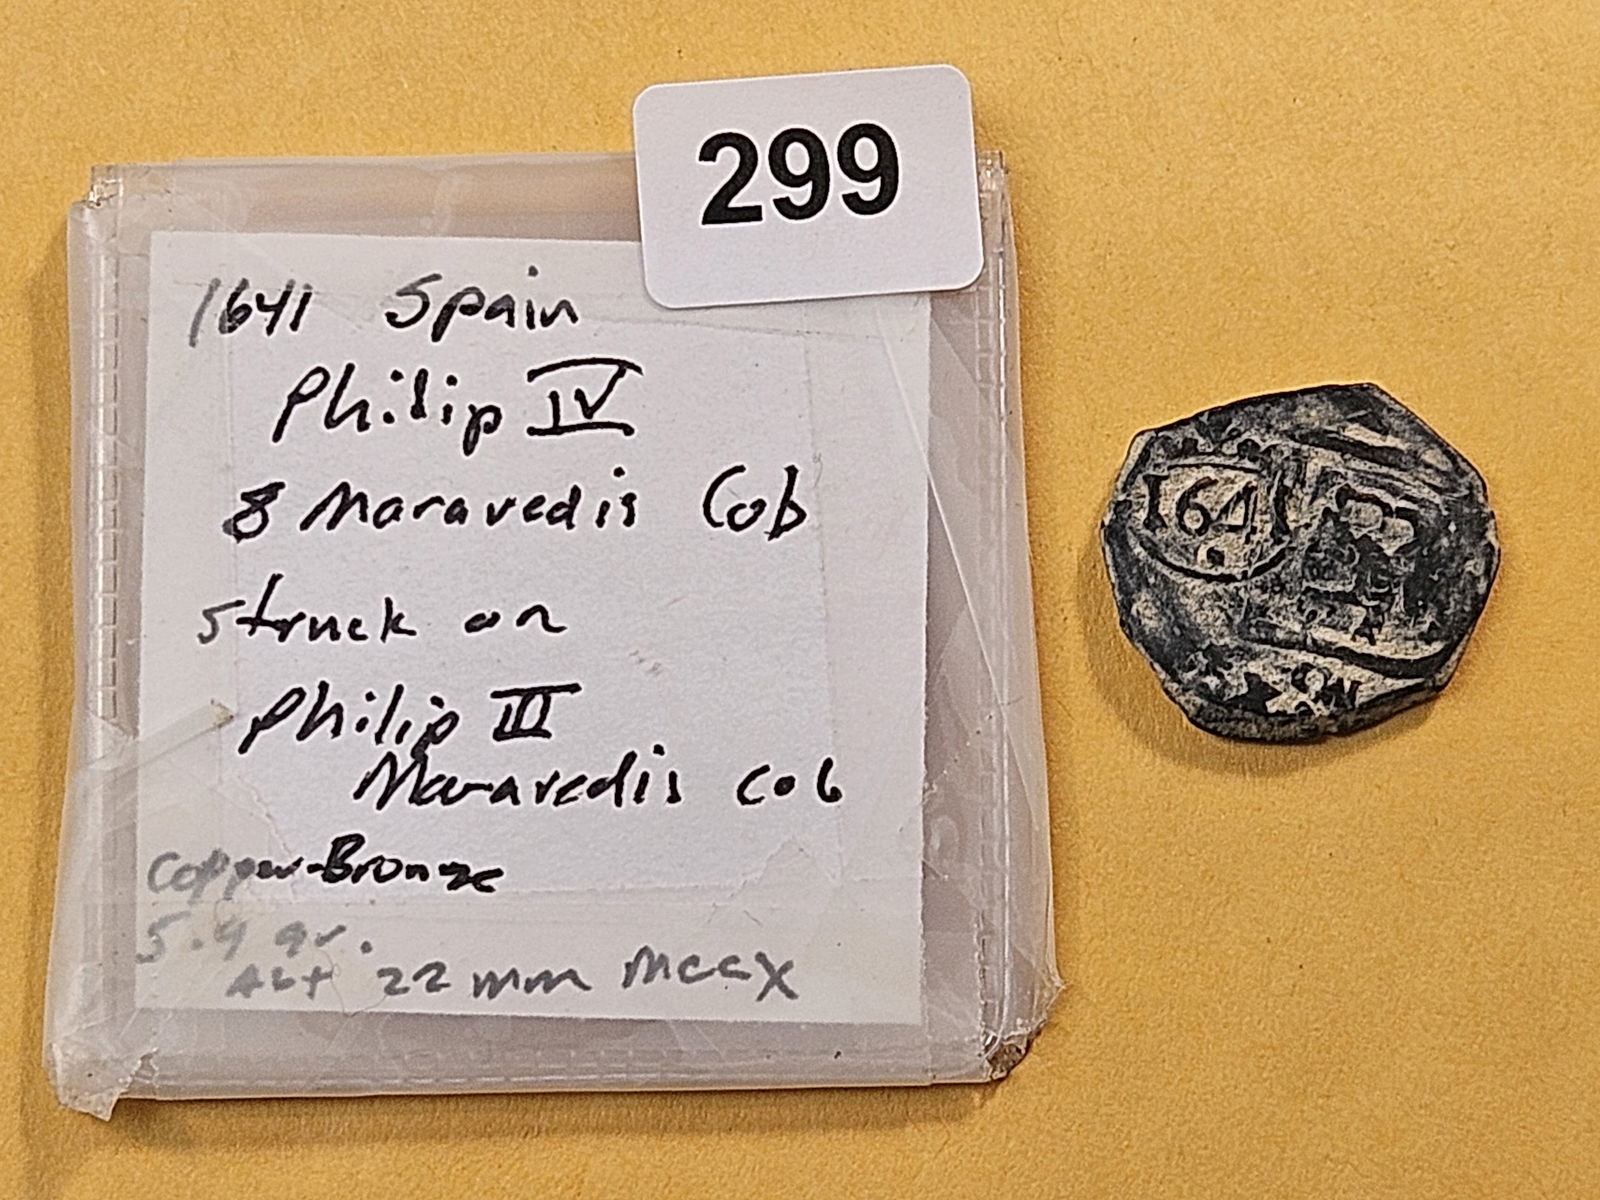 299
1641 Spain
Philip IV
8 Maravedis Cob
struck on
Philip III
Maravedis cob
Copper-Bronze
5.9 gr.
Abt 22 mm MCCX
1641